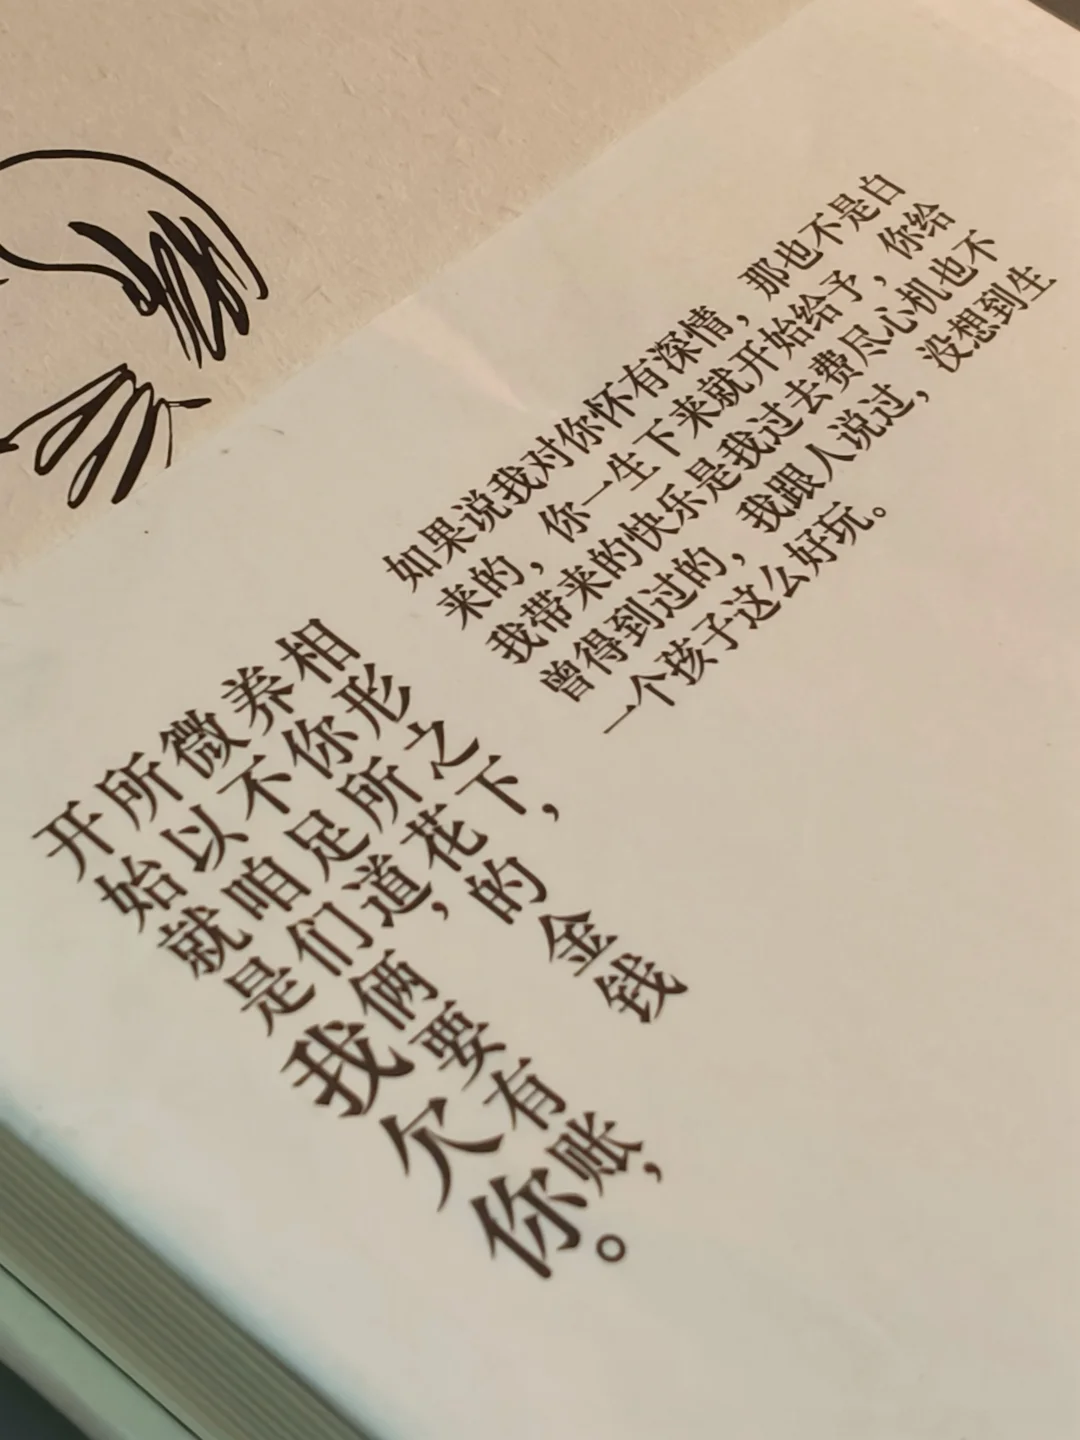 如果说我对你怀有深情，那也不是白
来的，你一生下来就开始给予，你给
我带来的快乐是我过去费尽心机也不
曾得到过的，我跟人说过，没想到生
一个孩子这么好玩。
相形之下，
养你所花的金钱
微不足道，
所以咱们俩要有账，
开始就是我欠你。